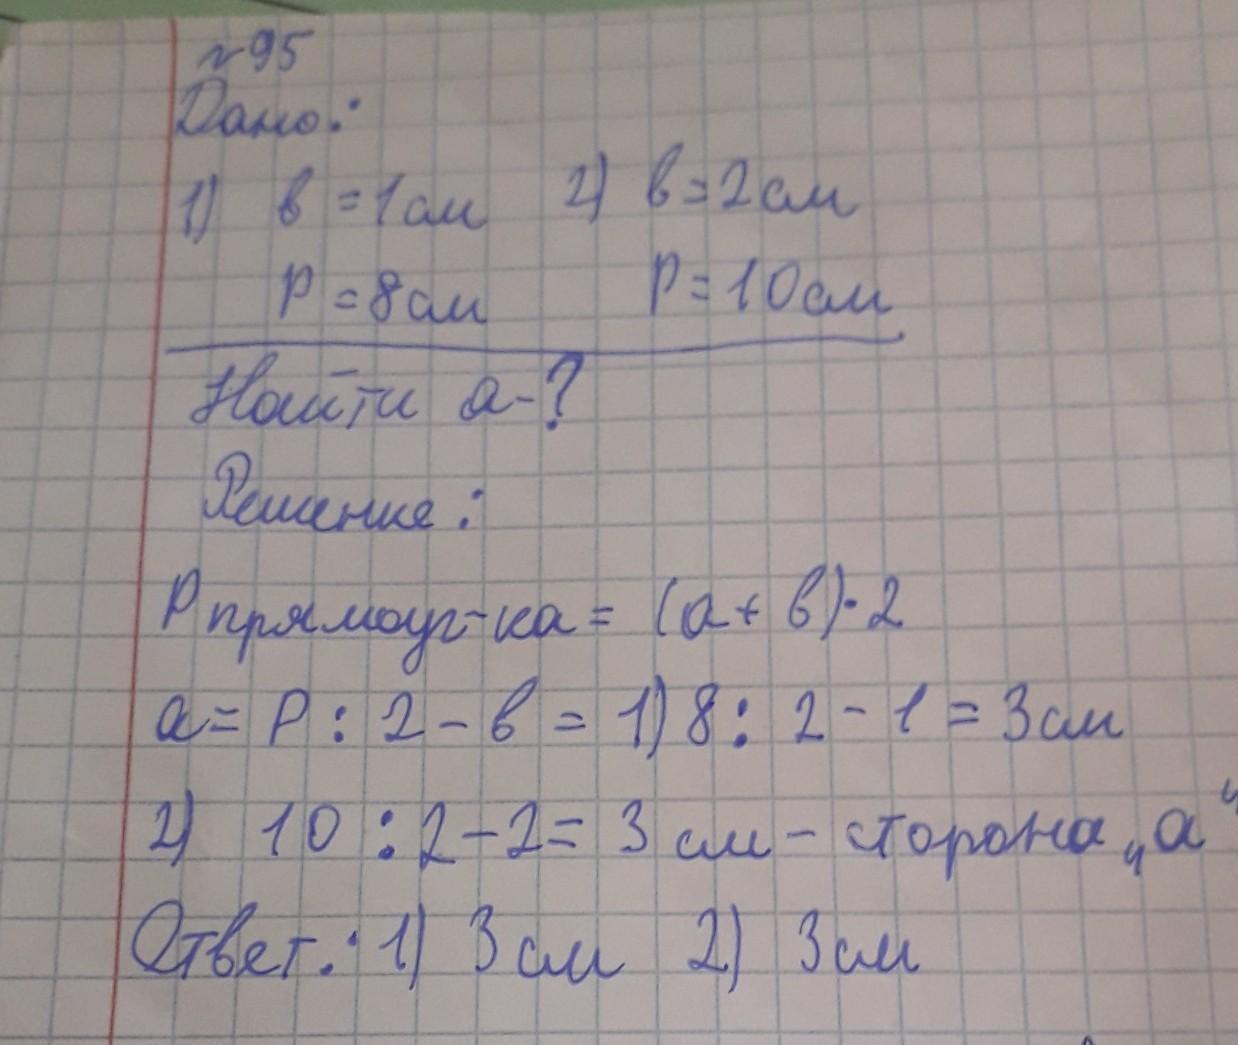 №95
Дано:
1) в = 1 см 2) в = 2 см
P = 8 см P = 10 см
Найти а-?
Решение:
P прямоуг-ка = (а + в)·2
а = P : 2 - в = 1) 8 : 2 - 1 = 3 см
2) 10 : 2 - 2 = 3 см - сторона „а“
Ответ: 1) 3 см 2) 3 см